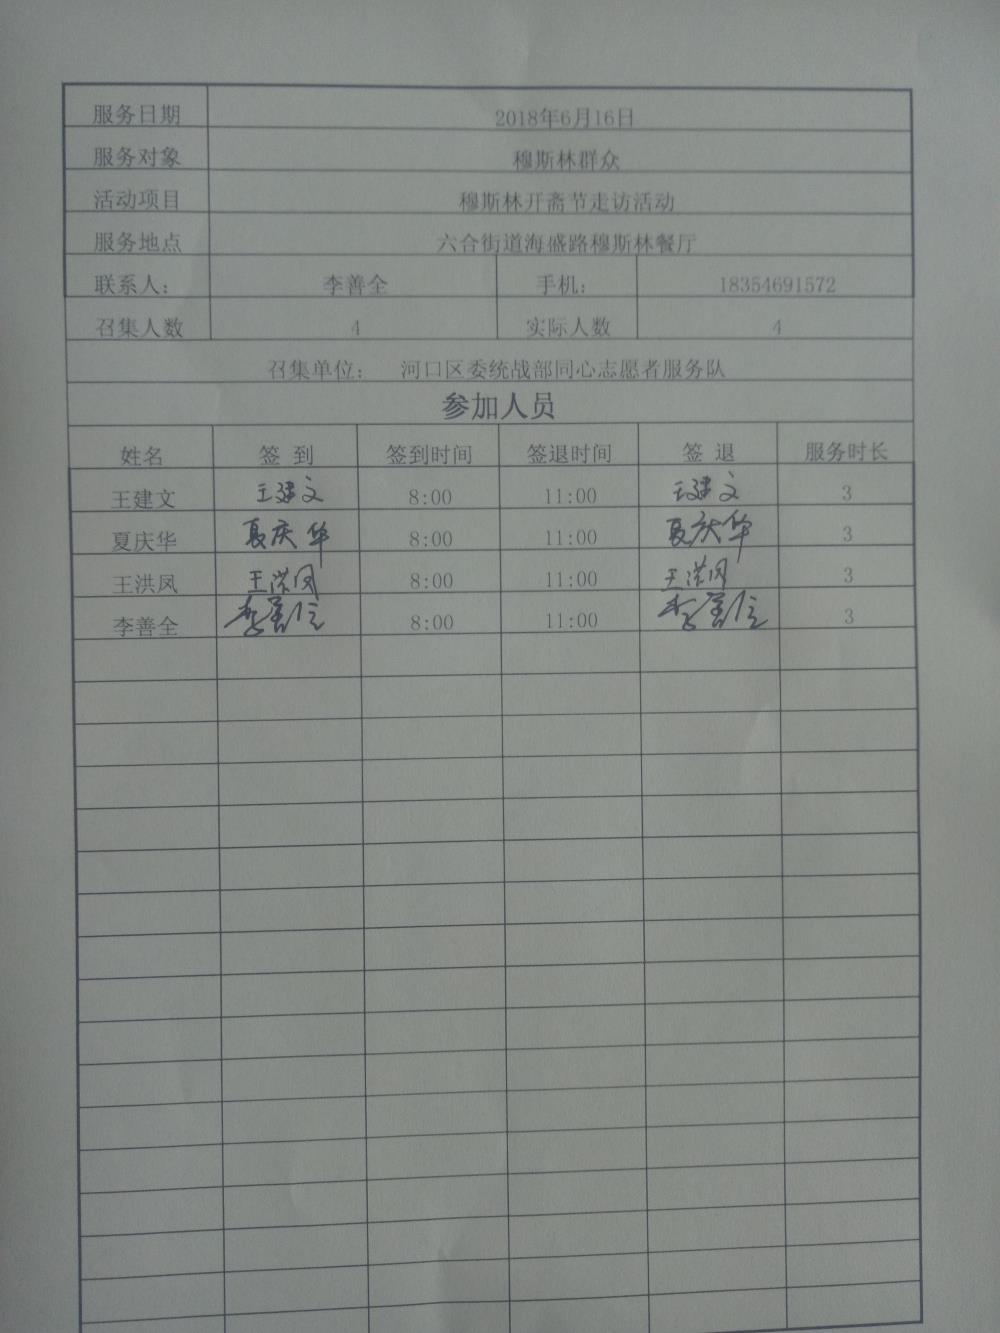 服务日期 2018年6月16日
服务对象 穆斯林群众
活动项目 穆斯林开斋节走访活动
服务地点 六合街道海盛路穆斯林餐厅
联系人： 李善全 手机： 18354691572
召集人数 4 实际人数 4
召集单位： 河口区委统战部同心志愿者服务队
参加人员
姓名 签 到 签到时间 签退时间 签 退 服务时长
王建文 王建文 8:00 11:00 王建文 3
夏庆华 夏庆华 8:00 11:00 夏庆华 3
王洪凤 王洪凤 8:00 11:00 王洪凤 3
李善全 李善全 8:00 11:00 李善全 3